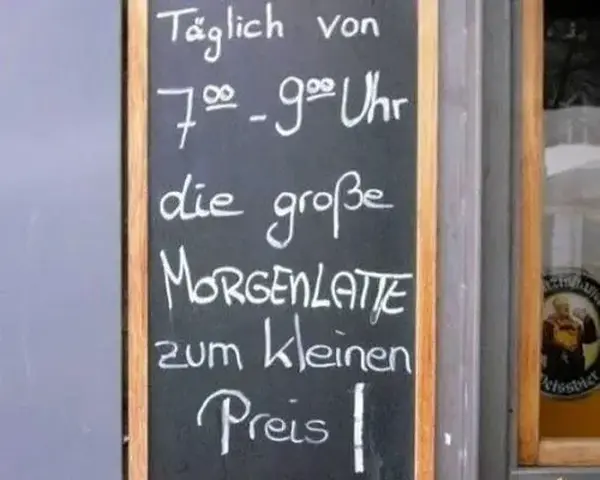 Täglich von
7⁰⁰ - 9⁰⁰ Uhr
die große
MORGENLATTE
zum kleinen
Preis!
Weissbier